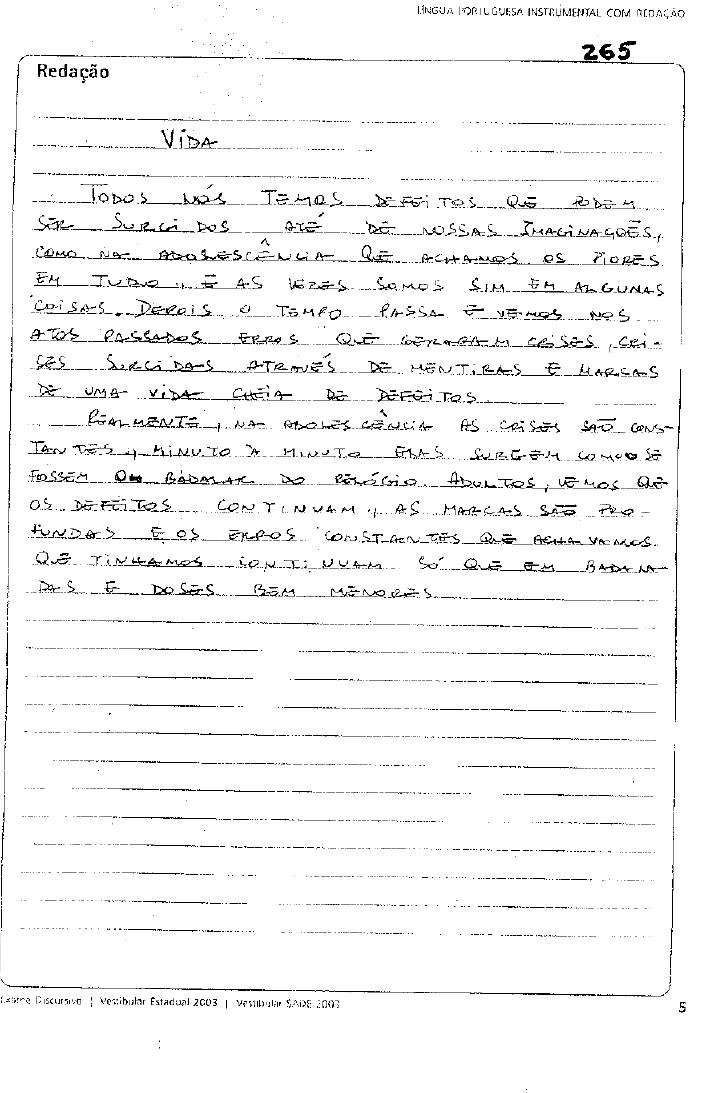 LÍNGUA PORTUGUESA INSTRUMENTAL COM REDAÇÃO
265
Redação
VIDA
TODOS NÓS TEMOS DEFEITOS QUE PODEM
SER SURGIDOS ATÉ DE NOSSAS IMAGINAÇÕES,
COMO NA ADOSLESCÊNCIA QUE ACHAMOS OS PIORES
EM TUDO, E AS VEZES SOMOS SIM EM ALGUNAS
COISAS. DEPOIS O TEMPO PASSA E VEMOS NOS
ATOS PASSADOS ERROS QUE GERARAM CRISES, CRI-
SES SURGIDAS ATRAVÉS DE MENTIRAS E MARCAS
DE UMA VIDA CHEIA DE DEFEITOS.
REALMENTE, NA ADOLESCÊNCIA AS CRISES SÃO CONS-
TANTES, MINUTO A MINUTO ELAS SURGEM COMO SE
FOSSEM BADALAR DO RELÓGIO. ADULTOS, VEMOS QUE
OS DEFEITOS CONTINUAM, AS MARCAS SÃO PRO-
FUNDAS E OS ERROS CONSTANTES QUE ACHAVAMOS
QUE TINHAMOS CONTINUAM SÓ QUE EM BADALA-
DAS E DOSES BEM MENORES.
Exame Discursivo | Vestibular Estadual 2003 | Vestibular SADE 2003
5